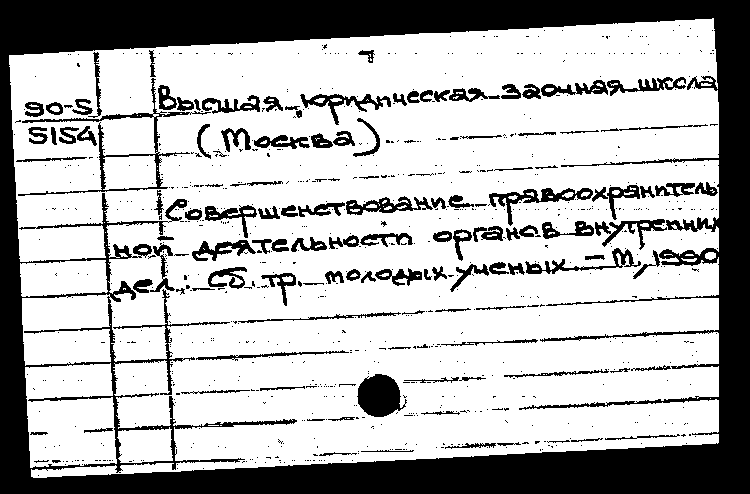 90-5 Высшая юридическая заочная школа
5154 (Москва)
Совершенствование правоохранитель-
ной деятельности органов внутренних
дел: Сб. тр. молодых ученых. – М., 1990